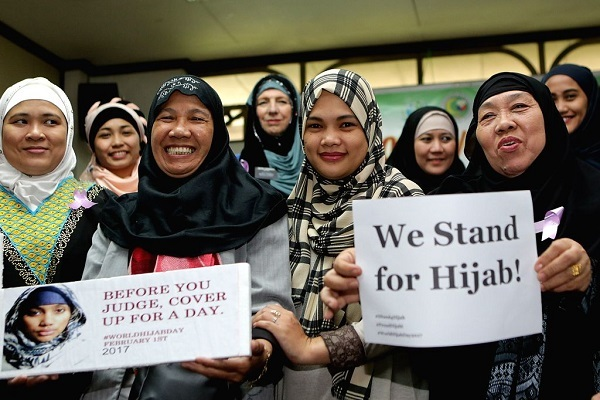 BEFORE YOU
JUDGE, COVER
UP FOR A DAY.
#WORLDHIJABDAY
FEBRUARY 1ST
2017
We Stand
for Hijab!